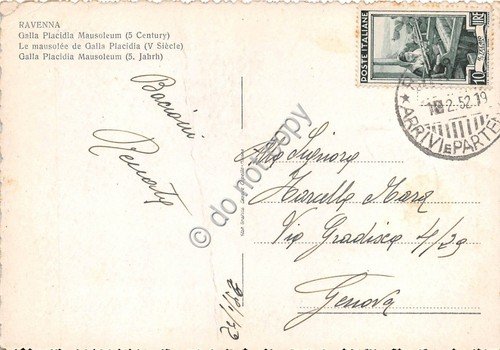 RAVENNA
Galla Placidia Mausoleum (5 Century)
Le mausolée de Galla Placidia (V Siècle)
Galla Placidia Mausoleum (5. Jahrh)
Bacioni
Renata
POSTE ITALIANE
LIRE
10
2-52.19
ARRIVI E PARTE
do not copy
Marcella Mara
Via Gradisca 4/39
Genova